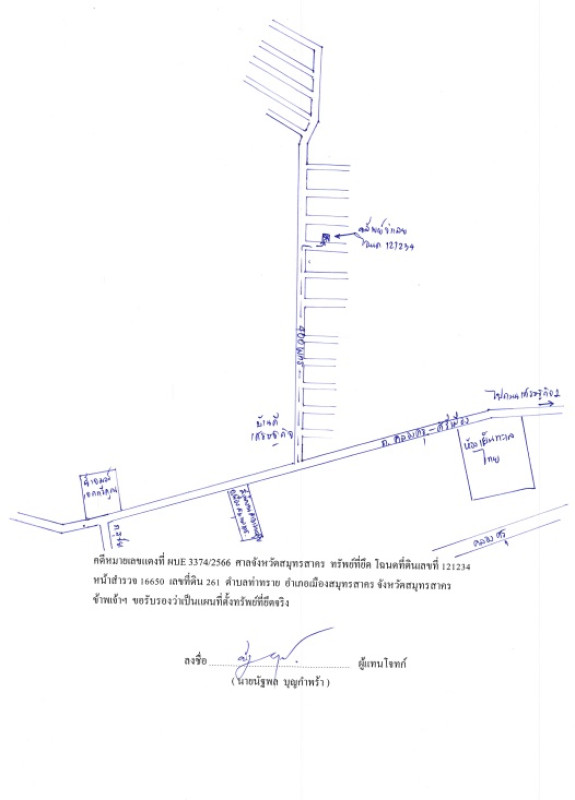 ทรัพย์จำเลย
โฉนด 121234
400 เมตร
ไปถนนเศรษฐกิจ 1
บ้านดี
เศรษฐกิจ
ถ. คลองครุ - ศรีเมือง
ห้องเย็น
ไทย
คลองครุ
คดีหมายเลขแดงที่ ผบE 3374/2566 ศาลจังหวัดสมุทรสาคร ทรัพย์ที่ยึด โฉนดที่ดินเลขที่ 121234
หน้าสำรวจ 16650 เลขที่ดิน 261 ตำบลท่าทราย อำเภอเมืองสมุทรสาคร จังหวัดสมุทรสาคร
ข้าพเจ้าฯ ขอรับรองว่าเป็นแผนที่ตั้งทรัพย์ที่ยึดจริง
ลงชื่อ ผู้แทนโจทก์
( นายนัฐพล บุญกำพร้า )